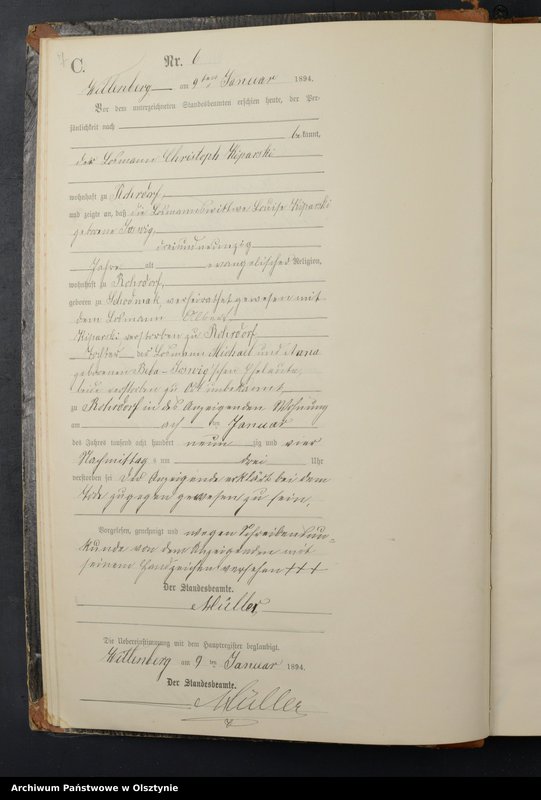 C.
Nr. 6
Wittenberg am 9ten Januar 1894.
Vor dem unterzeichneten Standesbeamten erschien heute, der Per-
sönlichkeit nach
bekannt,
der Losmann Christoph Kiparski
wohnhaft zu Rohrdorf,
und zeigte an, daß die Losmannswittwe Louise Kiparski
geborene
dreiundneunzig
Jahre alt evangelischer Religion,
wohnhaft zu Rohrdorf,
geboren zu Schodmak, verheirathet gewesen mit
dem Losmann Albert
Kiparski verstorben zu Rohrdorf
Tochter des Losmann Michael und Anna
geborenen schen Eheleute,
beide verstorben zu Ort unbekannt,
zu Rohrdorf in des Anzeigenden Wohnung
am acht ten Januar
des Jahres tausend acht hundert neunzig und vier
Nachmittag s um drei Uhr
verstorben sei Der Anzeigende erklärt bei dem
Tode zugegen gewesen zu sein.
Vorgelesen, genehmigt und wegen Schreibensun-
kunde von dem Anzeigenden mit
seinem Handzeichen versehen +++
Der Standesbeamte.
Müller
Die Uebereinstimmung mit dem Hauptregister beglaubigt.
Wittenberg am 9 ten Januar 1894.
Der Standesbeamte.
Müller
Archiwum Państwowe w Olsztynie